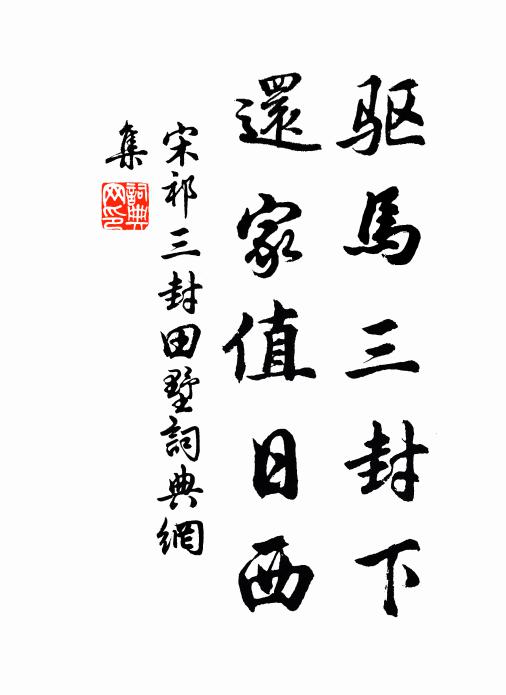 驱馬三封下
還家值日西
宋祁三封田墅詞典網
集
詞典
网印